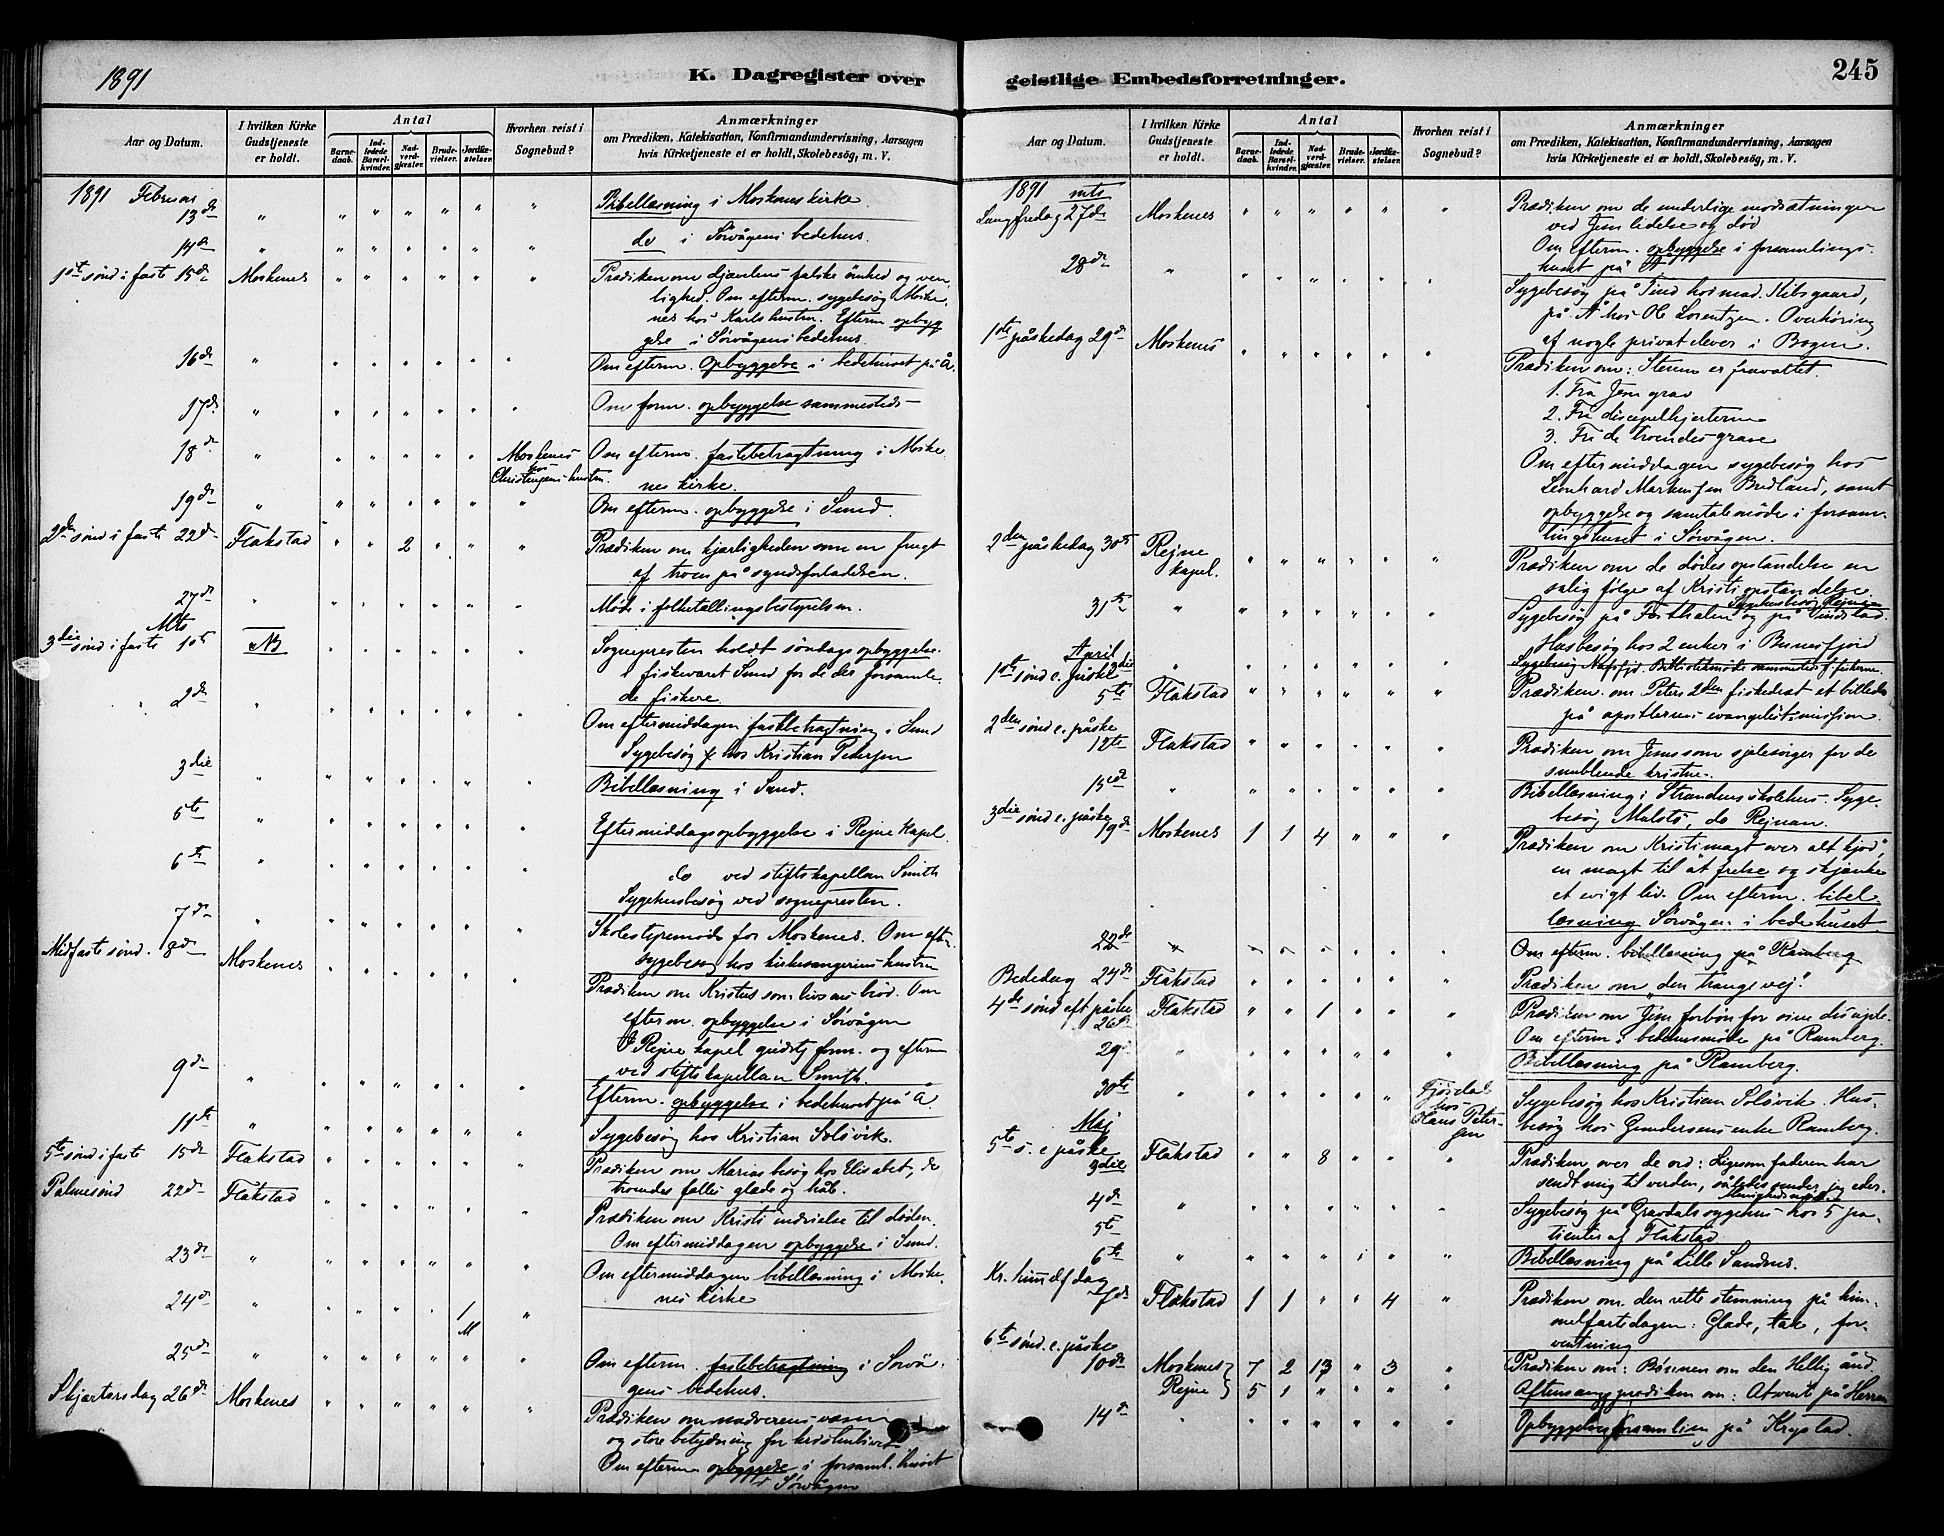 1891
K. Dagregister over
geistlige Embedsforretninger.
245
Aar og Datum.
I hvilken Kirke
Gudstjeneste
er holdt.
Antal
Barne-
daab.
Ind-
ledede
Barsel-
kvinder.
Nad-
verd-
gjester.
Brude-
vielser.
Jordfæ-
stelser.
Hvorhen reist i
Sognebud?
Anmærkninger
om Prædiken, Katekisation, Konfirmandundervisning, Aarsagen
hvis Kirketjeneste ei er holdt, Skolebesøg, m. V.
1891 Februar
13de " " " " " " " Bibellæsning i Moskenes kirke
14de " " " " " " " do i Sörvågens bedehus.
1ste sönd i faste 15de Moskenes " " " " " " Prædiken om djævelens falske ömhed og ven
lighed. Om efterm. sygebesög Moske
nes hos Karls hustru. Efterm opbyg
gelse i Sörvågens bedehus.
16de " " " " " " " Om efterm. opbyggelse i bedehuset på Å.
17de " " " " " " " Om form. opbyggelse sammesteds
18de " " " " " " Moskenes
hos
Christensens hustru
Om efterm. fastebetragtning i Moske
nes kirke.
19de " " " " " " " Om efterm. opbyggelse i Sund.
2den sönd i faste 22de Flakstad " " 2 " " " Prædiken om kjærligheden som en frugt
af troen på syndsforladelsen.
27de " " " " " " " Möde i folketællingsbestyrelsen.
Mts
3die sönd i faste 1ste NB " " " " " " Sognepresten holdt söndagsopbyggelse
i fiskeværet Sund for de der forsamle
de fiskere.
2de " " " " " " " Om eftermiddagen fastebetragtning i Sund
Sygebesög hos Kristian Pedersen
3die " " " " " " " Bibellæsning i Sund.
5te " " " " " " " Eftermiddagsopbyggelse i Rejne kapel
6te " " " " " " " do ved stiftskapellan Smith
Sygehusbesög ved sognepresten.
7de " " " " " " " Skolestyremöde for Moskenes. Om eft.
sygebesög hos kirkesangerens hustru
Midfaste sönd. 8de Moskenes " " " " " " Prædiken om Kristus som livsens bröd. Om
efterm. opbyggelse i Sörvågen
I Rejne kapel gudstj form. og efterm
ved stiftskapellan Smith.
9de " " " " " " " Efterm. opbyggelse i bedehuset på Å.
11te " " " " " " " Sygebesög hos Kristian Solsvik.
5te sönd i faste 15de Flakstad " " " " " " Prædiken om Marias besög hos Elisabet, de
troendes fælles glæde og håb.
Palmesönd 22de Flakstad " " " " " " Prædiken om Kristi indvielse til döden.
Om eftermiddagen opbyggelse i Sund.
23de " " " " " " " Om eftermiddagen bibellæsning i Moske
nes kirke
24de " " " " " 1 "
M
25de " " " " " " " Om efterm. fastebetragtning i Sörvå
gens bedehus.
Skjærtorsdag 26de Moskenes " " " " " " Prædiken om nadverens væsen
og store betydning for kristenlivet
Om efterm opbyggelse i forsaml. huset
i Sörvågen
Aar og Datum.
I hvilken Kirke
Gudstjeneste
er holdt.
Antal
Barne-
daab.
Ind-
ledede
Barsel-
kvinder.
Nad-
verd-
gjester.
Brude-
vielser.
Jordfæ-
stelser.
Hvorhen reist i
Sognebud?
Anmærkninger
om Prædiken, Katekisation, Konfirmandundervisning, Aarsagen
hvis Kirketjeneste ei er holdt, Skolebesøg, m. V.
1891 mts
Langfredag 27de Moskenes " " " " " " Prædiken om de underlige modsætninger
ved Jesu lidelse og död
Om efterm. opbyggelse i forsamlings
huset på Å
28de " " " " " " " Sygebesög på Tind hos mad. Kibsgaard,
på Å hos Ole Lorentzen. Overhöring
af nogle privatelever i Bogen.
1ste påskedag 29de Moskenes " " " " " " Prædiken om: Stenen er fravæltet.
1. Fra Jesu grav
2. Fra discipelhjerterne
3. Fra de troendes grave
Om eftermiddagen sygebesög hos
Leonhard Bredland, samt
opbyggelse og samtalemöde i forsam-
lingshuset i Sörvågen.
2den påskedag 30te Rejne
kapel. " " " " " " Prædiken om de dödes opstandelse en
salig fölge af Kristi opstandelse
31te " " " " " " " Sygehusbesög Rejne
Sygebesög på Forshalsen og på Tindstad.
Husbesög hos 2 enker i Bunesfjord
April
2die " " " " " " " Sygebesög Napfjd. Bibliotekmöde sammesteds f. fiskerne
1ste sönd e. påske
5te Flakstad " " " " " " Prædiken om Peters 2den fiskedræt et billede
på apostlernes evangeliske mission.
2den sönd e. påske
12te Flakstad " " " " " " Prædiken om Jesus som sjelesörger for de
snublende kristne.
15de " " " " " " " Bibellæsning i Strandens skolehus. Syge
besög Molstö, do Rejnen.
3die sönd e. påske
19de Moskenes 1 1 4 " " " Prædiken om Kristi magt over alt kjöd,
en magt til at frelse og skjænke
et evigt liv. Om efterm. bibel
læsning Sörvågen i bedehuset
22de " " " " " " " Om efterm. bibellæsning på Ramberg
Bededag 24de Flakstad " " " " " " Prædiken om „den trange vej."
4de sönd eft påske
26de Flakstad " " 1 " " " Prædiken om Jesu forbön for sine disciple.
Om efterm. bedehusmöde på Ramberg.
29de " " " " " " " Bibellæsning på Ramberg.
30te " " " " " " Fjördal
hos
Hans Peter-
sen
Sygebesög hos Kristian Solsvik. Hus-
besög hos Gundersens enke Ramberg.
Maj
5te s. e påske
3die Flakstad " " 8 " " " Prædiken over de ord: Ligesom faderen har
sendt mig til verden, således sender jeg eder.
4de " " " " " " " Menighedsmöde
Sygebesög på Gravdals sygehus hos 5 pa-
tienter af Flakstad
5te
6te " " " " " " " Bibellæsning på Lille Sandnes.
Kr. himelf dag
7de Flakstad 1 1 " " 4 " Prædiken om den rette stemning på him-
melfartsdagen: Glæde, tak, for-
ventning
6te sönd. e. påske
10de Moskenes 7 2 13 " 3 " Prædiken om: Bönnen om den Hellig ånd
Rejne 5 1 " " " " Aftensangsprædiken om: Atvent på Herren
14de " " " " " " " Opbyggelsesforsamling på Krystad.